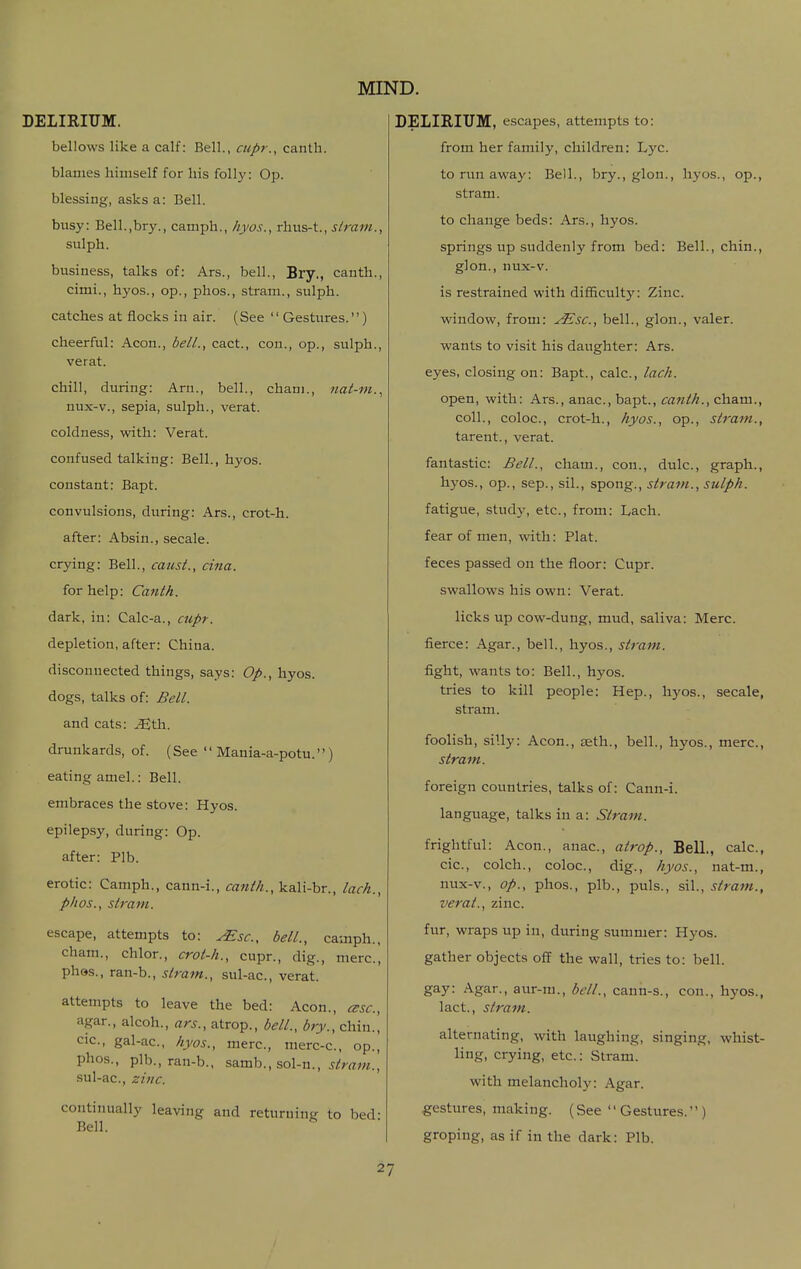 MIND.
DELIRIUM.
bellows like a calf: Bell., cupr., canth.
blames himself for his folly: Op.
blessing, asks a: Bell.
busy: Bell.,bry., camph., hyos., rhus-t., stram.,
sulph.
business, talks of: Ars., bell., Bry., canth.,
cimi., hyos., op., phos., stram., sulph.
catches at flocks in air. (See "Gestures.")
cheerful: Acon., bell., cact., con., op., sulph.,
verat.
chill, during: Arn., bell., cham., nat-m.,
nux-v., sepia, sulph., verat.
coldness, with: Verat.
confused talking: Bell., hyos.
constant: Bapt.
convulsions, during: Ars., crot-h.
after: Absin., secale.
crying: Bell., caust., cina.
for help: Canth.
dark, in: Calc-a., cupr.
depletion, after: China.
disconnected things, says: Op., hyos.
dogs, talks of: Bell.
and cats: Æth.
drunkards, of. (See "Mania-a-potu.")
eating amel.: Bell.
embraces the stove: Hyos.
epilepsy, during: Op.
after: Plb.
erotic: Camph., cann-i., canth., kali-br., lach.,
phos., stram.
escape, attempts to: Æsc., bell., camph.,
cham., chlor., crot-h., cupr., dig., merc.,
phos., ran-b., stram., sul-ac., verat.
attempts to leave the bed: Acon., æsc.,
agar., alcoh., ars., atrop., bell., bry., chin.,
cic., gal-ac., hyos., merc., merc-c., op.,
phos., plb., ran-b., samb., sol-n., stram.,
sul-ac., zinc.
continually leaving and returning to bed:
Bell.
DELIRIUM, escapes, attempts to:
from her family, children: Lyc.
to run away: Bell., bry., glon., hyos., op.,
stram.
to change beds: Ars., hyos.
springs up suddenly from bed: Bell., chin.,
glon., nux-v.
is restrained with difficulty: Zinc.
window, from: Æsc., bell., glon., valer.
wants to visit his daughter: Ars.
eyes, closing on: Bapt., calc., lach.
open, with: Ars., anac., bapt., canth., cham.,
coll., coloc., crot-h., hyos., op., stram.,
tarent., verat.
fantastic: Bell., cham., con., dulc., graph.,
hyos., op., sep., sil., spong., stram., sulph.
fatigue, study, etc., from: Lach.
fear of men, with: Plat.
feces passed on the floor: Cupr.
swallows his own: Verat.
licks up cow-dung, mud, saliva: Merc.
fierce: Agar., bell., hyos., stram.
fight, wants to: Bell., hyos.
tries to kill people: Hep., hyos., secale,
stram.
foolish, silly: Acon., æth., bell., hyos., merc.,
stram.
foreign countries, talks of: Cann-i.
language, talks in a: Stram.
frightful: Acon., anac., atrop., Bell., calc.,
cic., colch., coloc., dig., hyos., nat-m.,
nux-v., op., phos., plb., puls., sil., stram.,
verat., zinc.
fur, wraps up in, during summer: Hyos.
gather objects off the wall, tries to: bell.
gay: Agar., aur-m., bell., cann-s., con., hyos.,
lact., stram.
alternating, with laughing, singing, whist-
ling, crying, etc.: Stram.
with melancholy: Agar.
gestures, making. (See "Gestures.")
groping, as if in the dark: Plb.
27